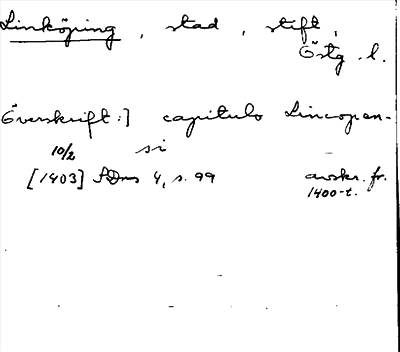 Linköping, stad, stift,
Östg. l.
Överskrift:] capitulo Lincopen-
si
10/2
[1403] SDns 4, s. 99 avskr. fr.
1400-t.